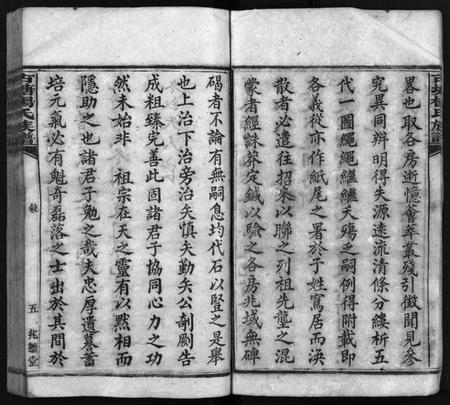 畧也取各房逝憶薈萃叢殘引徵聞見參
究異同辨明得失源遠流清條分縷析五
代一圖繩繩繼繼夭殤之嗣例得附載即
各義從亦作紙尾之署於子姓寫居而渙
散者必遣往招來以聯之列祖先壟之混
蒙者經誅莽定鍼以驗之各房兆域無碑
碣者不論有無嗣息均代石以豎之是舉
也上治下治旁治矣慎矣勤矣公剞劂告
成粗臻完善此固諸君子協同心力之功
然未始非 祖宗在天之靈有以黙相而
隱助之也諸君子勉之哉夫忠厚遺基蓄
培元氣必有魁奇磊落之士出於其間於
楊氏族譜
五